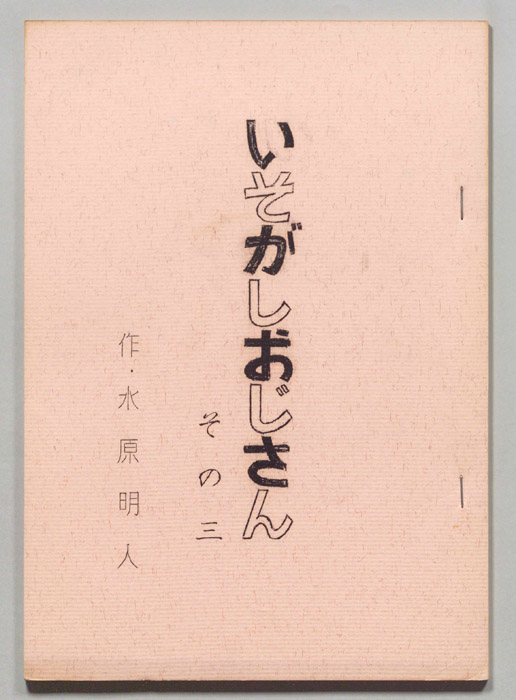 いそがしおじさん
その三
作・水原明人